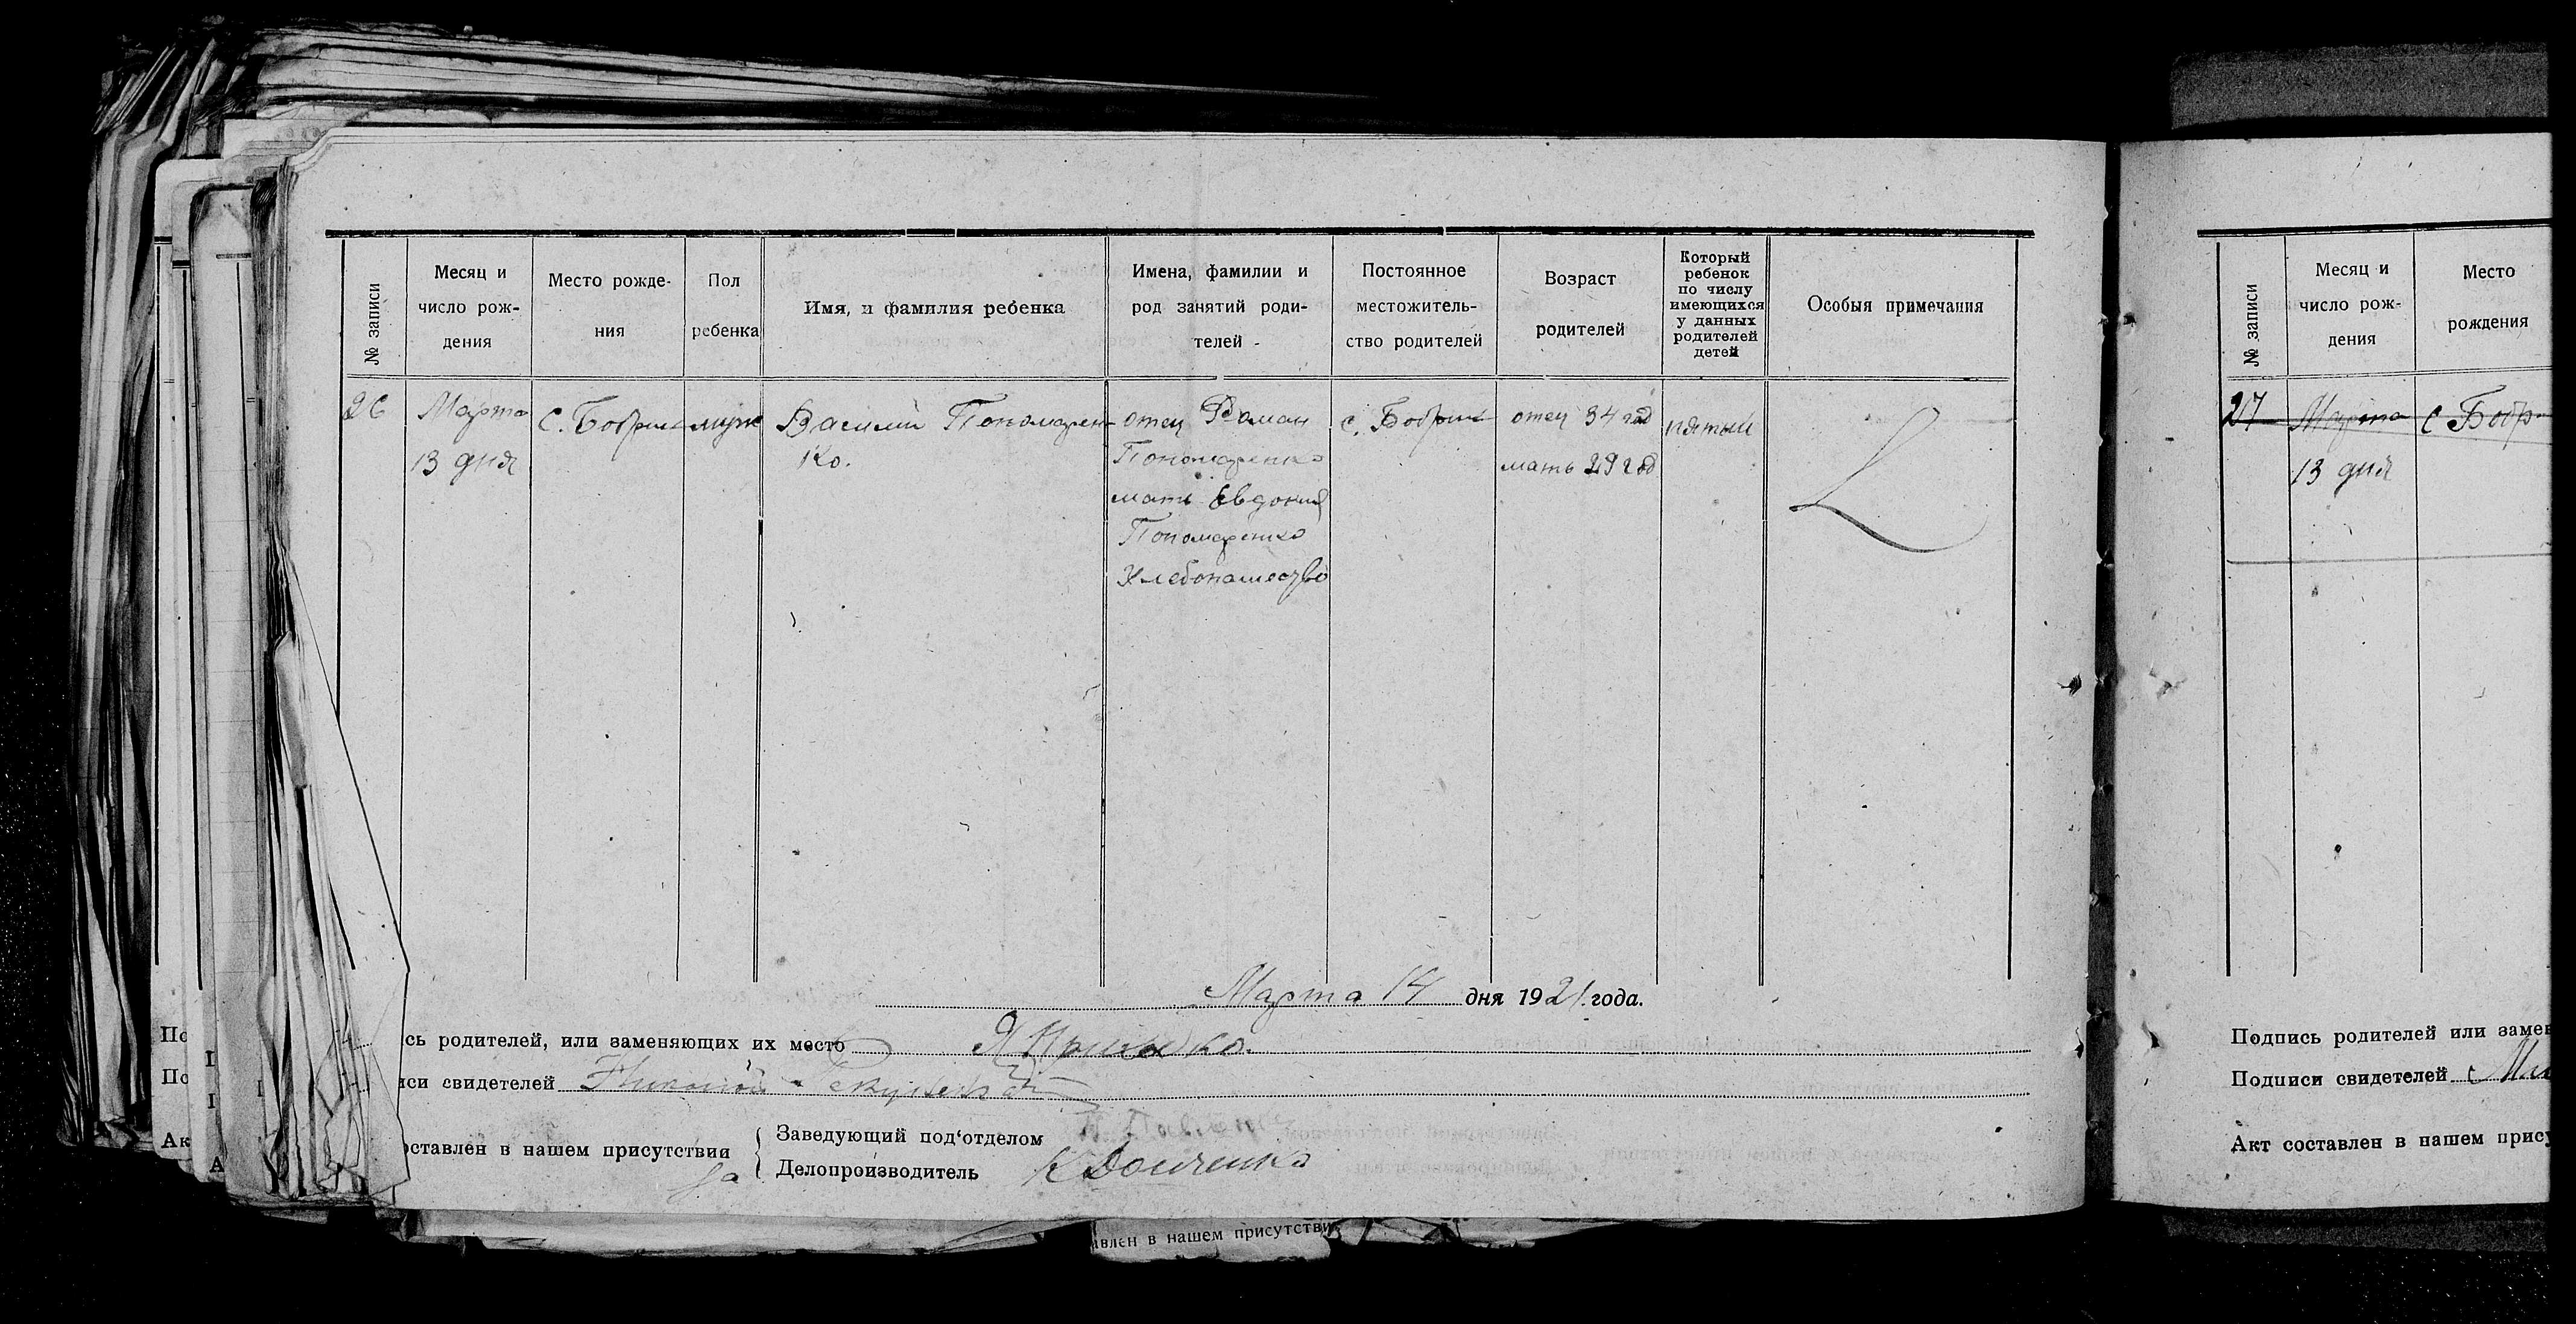 № записи
Месяц и
число рож-
дения
Место рожде-
ния
Пол
ребенка
Имя, и фамилия ребенка
Имена, фамилии и
род занятий роди-
телей -
Постоянное
местожитель-
ство родителей
Возраст
родителей
Который
ребенок
по числу
имеющихся
у данных
родителей
детей
Особыя примечания
26
Марта
13 дня
с. Бобрик
муж
Василий Пономарен-
ко.
отец Роман
Пономаренко
мать Евдокия
Пономаренко
Хлебопашество
с. Бобрик
отец 34 год
мать 29 год
пятый
Марта 14 дня 1921 года.
сь родителей, или заменяющих их место
иси свидетелей Николай
оставлен в нашем присутствии
Заведующий под'отделом
Делопроизводитель К Донченко
авлен в нашем присутстви
По
По
Ак
№ записи
Месяц и
число рож-
дения
Место
рождения
27
Марта
13 дня
с Бобр
Подпись родителей или замен
Подписи свидетелей
Акт составлен в нашем прису